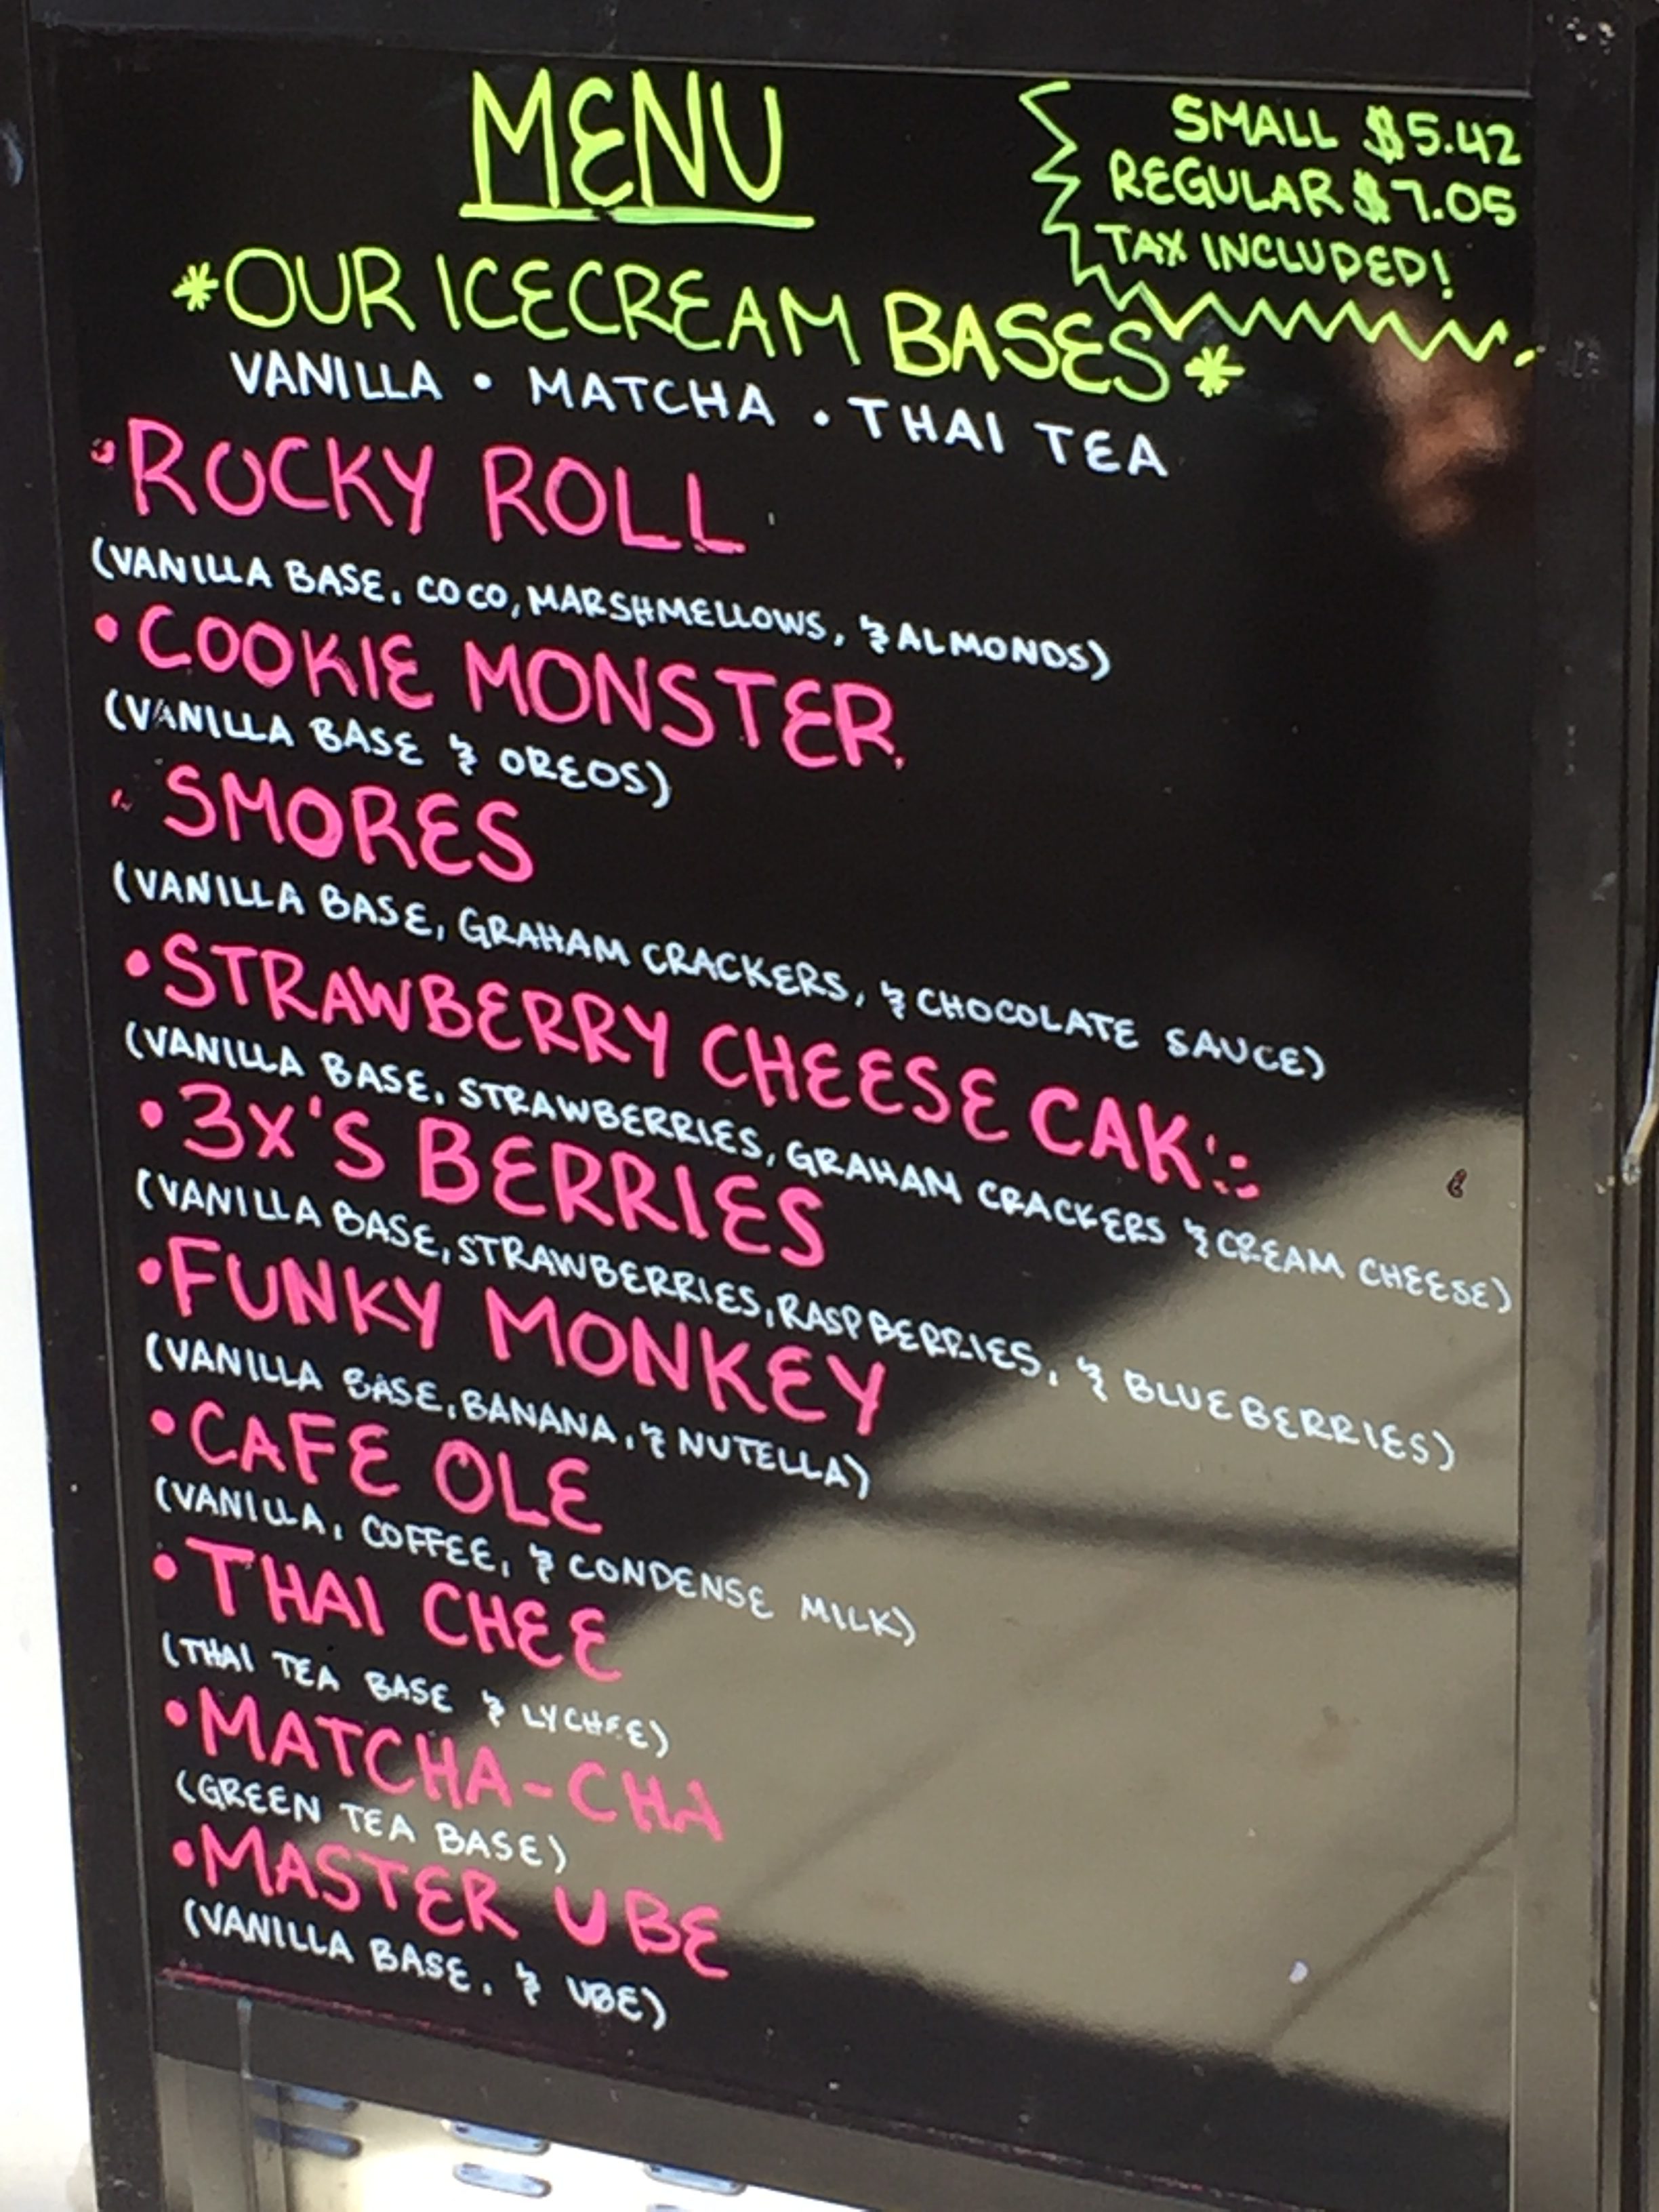 MENU
SMALL $5.42
REGULAR $7.05
TAX INCLUDED!
*OUR ICECREAM BASES*
VANILLA • MATCHA • THAI TEA
•ROCKY ROLL
(VANILLA BASE, COCO, MARSHMELLOWS, & ALMONDS)
•COOKIE MONSTER
(VANILLA BASE & OREOS)
•SMORES
(VANILLA BASE, GRAHAM CRACKERS, & CHOCOLATE SAUCE)
•STRAWBERRY CHEESE CAKE
(VANILLA BASE, STRAWBERRIES, GRAHAM CRACKERS & CREAM CHEESE)
•3X'S BERRIES
(VANILLA BASE, STRAWBERRIES, RASPBERRIES, & BLUEBERRIES)
•FUNKY MONKEY
(VANILLA BASE, BANANA, & NUTELLA)
•CAFE OLE
(VANILLA, COFFEE, & CONDENSE MILK)
•THAI CHEE
(THAI TEA BASE & LYCHEE)
•MATCHA-CHA
(GREEN TEA BASE)
•MASTER UBE
(VANILLA BASE, & UBE)